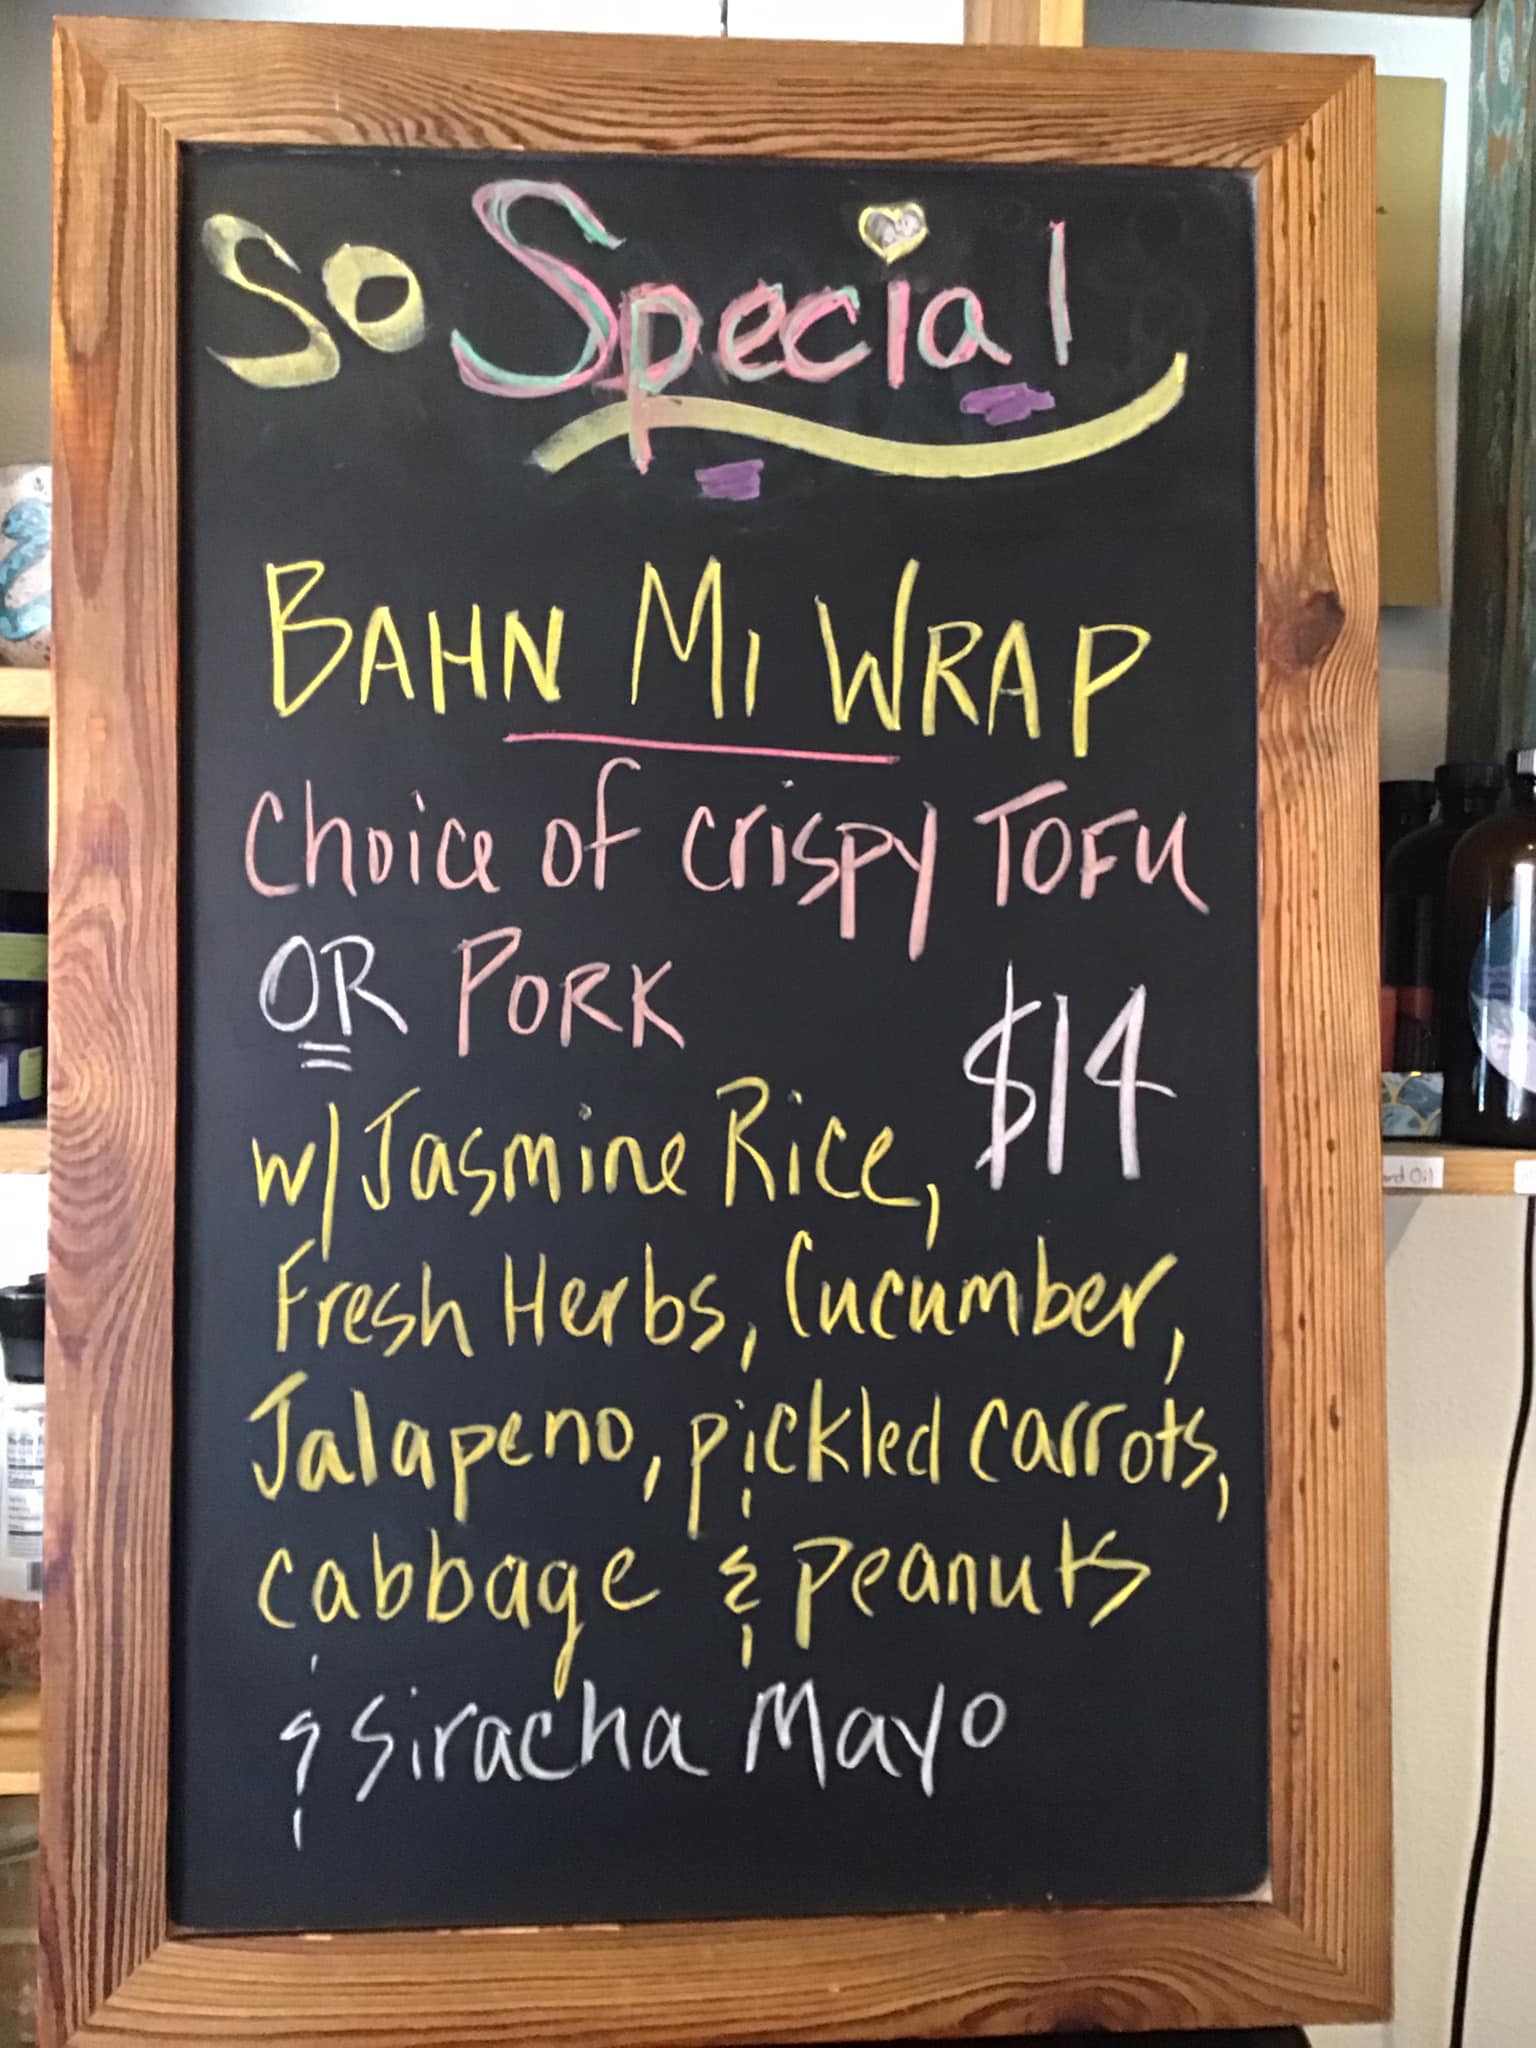 So Special
BAHN Mi WRAP
Choice of crispy TOFU
OR PORK
$14
w/ Jasmine Rice,
Fresh Herbs, Cucumber,
Jalapeno, pickled carrots,
cabbage & peanuts
& Siracha Mayo
Oil